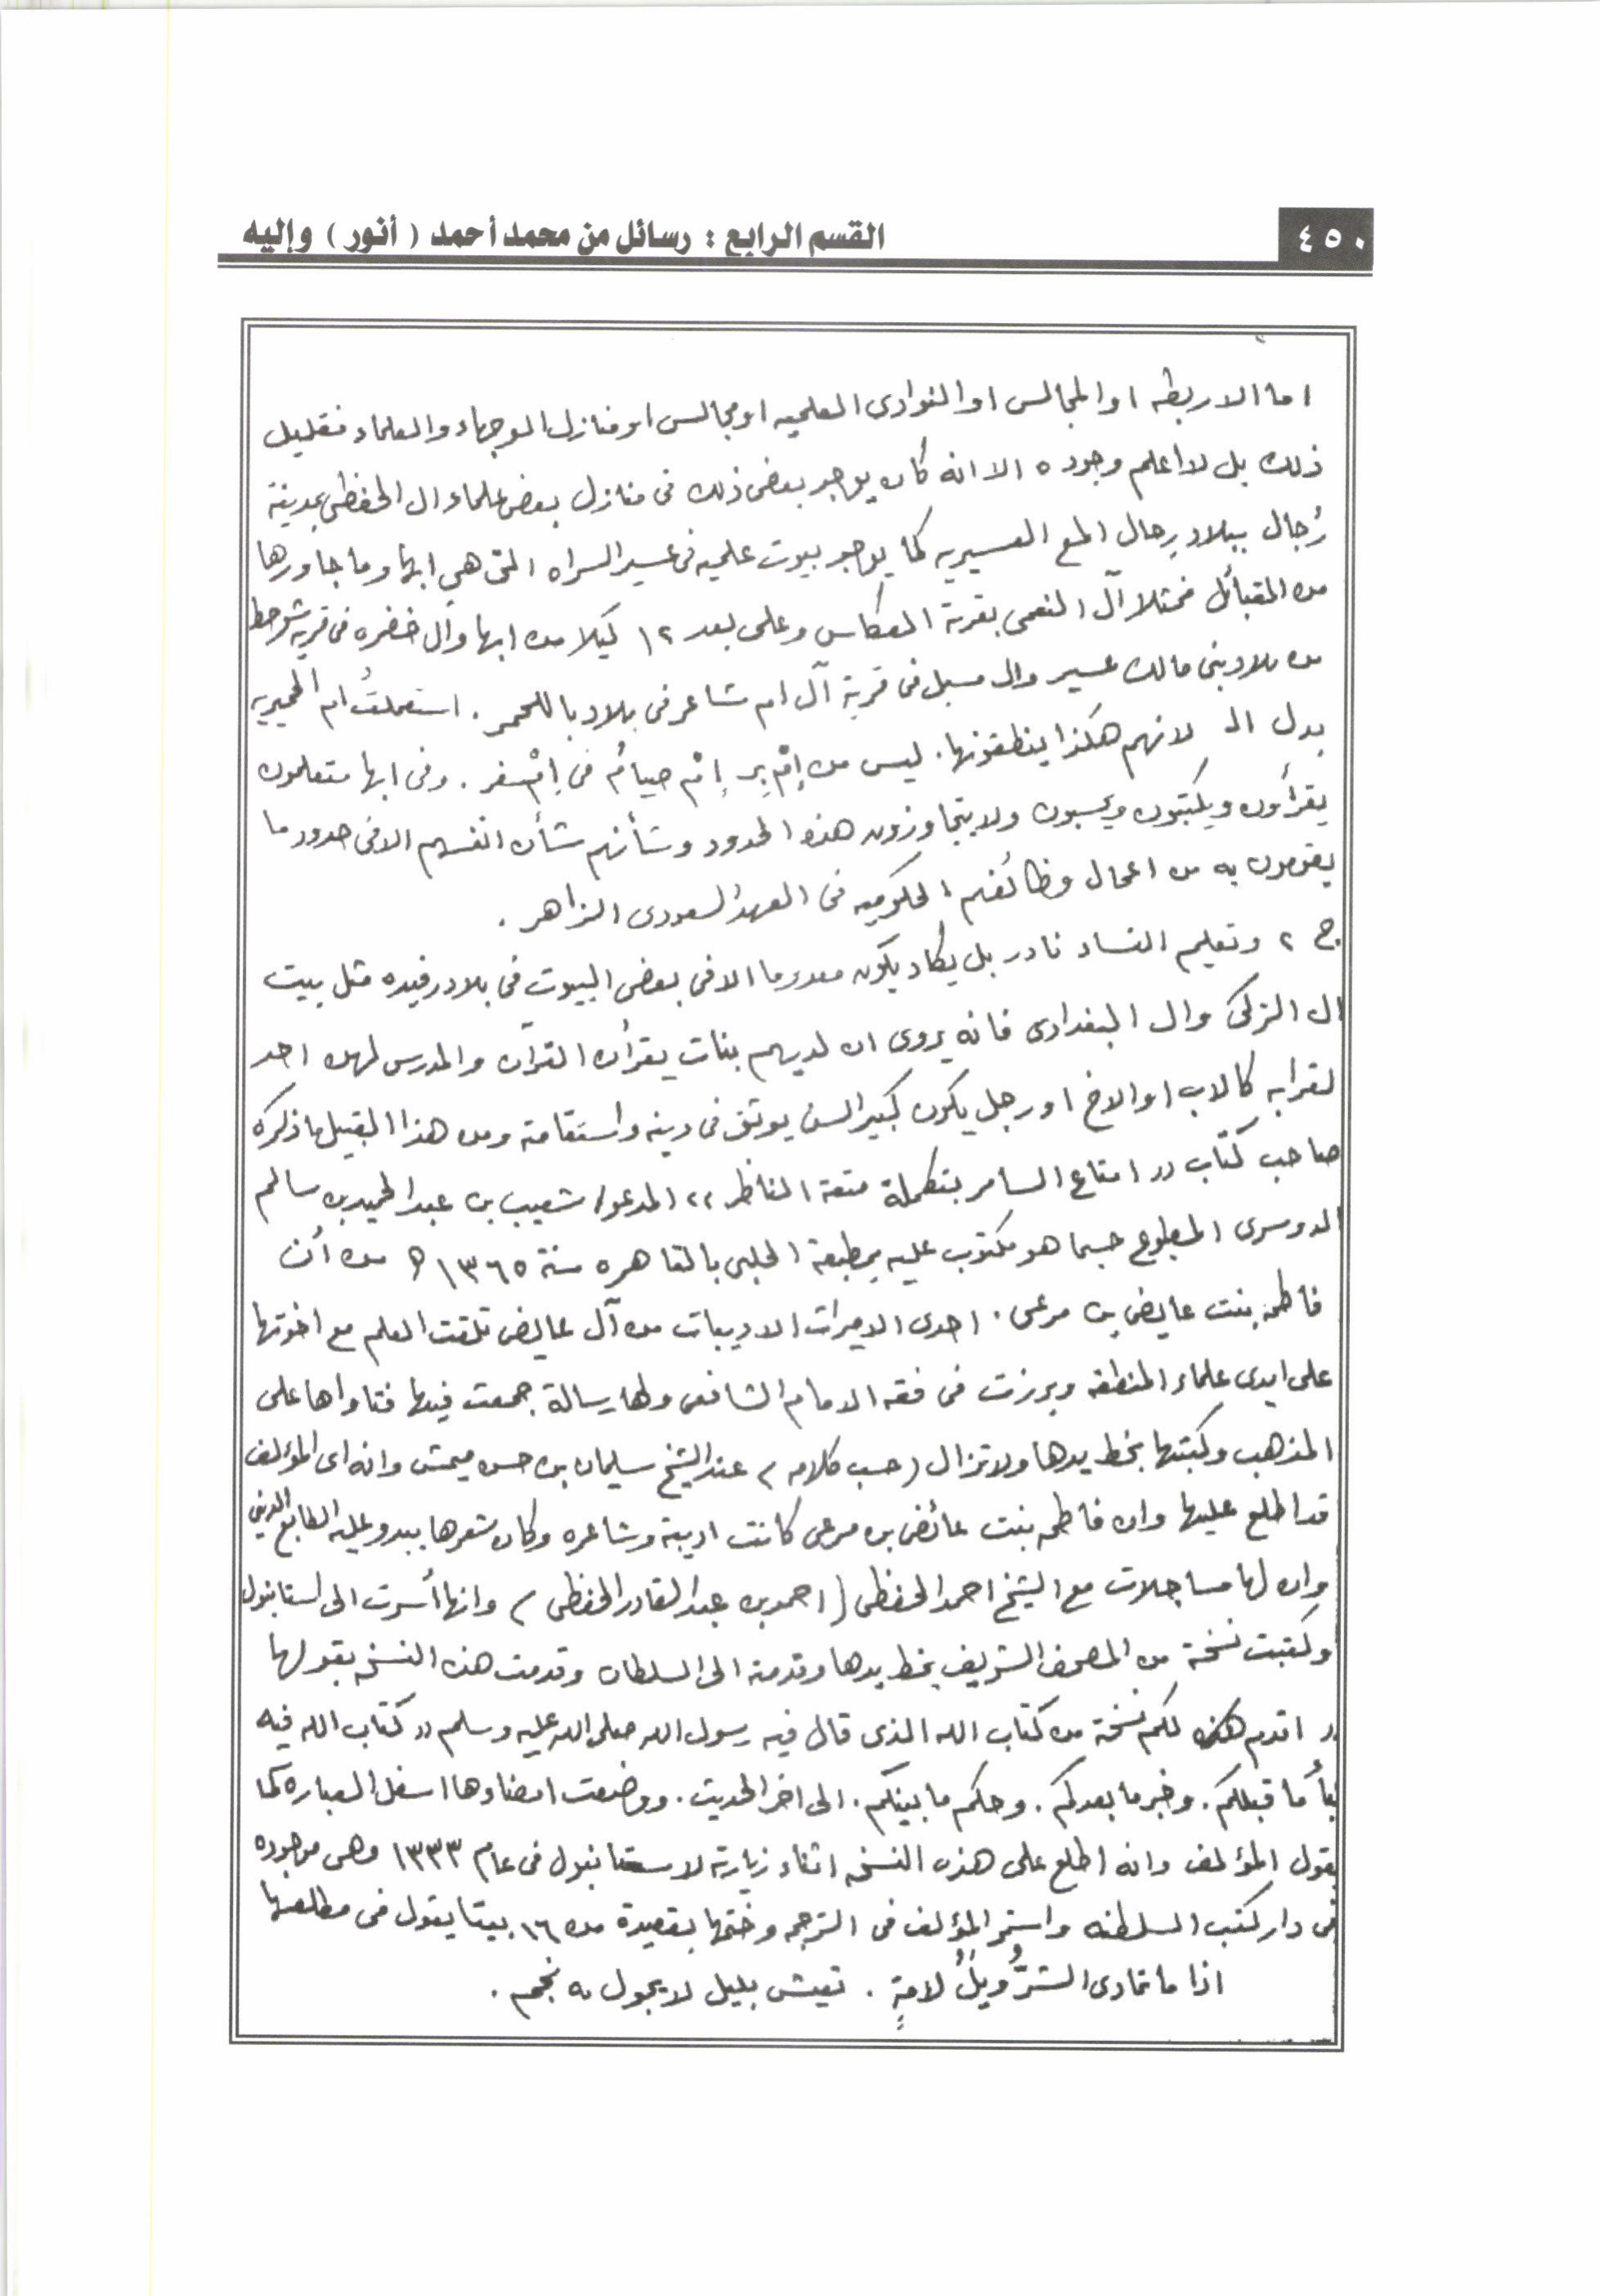 ٤٥٠
القسم الرابع : رسائل من محمد أحمد ( أنور ) وإليه
اما الاربطه او المجالس او النوادى العلميه او مجالس او منازل الوجهاء والعلماء فقليل
ذلك بل لا اعلم وجوده الا انه كان يوجد بعض ذلك فى منازل بعض علماء ال الحفظى بمدينة
رُجال ببلاد رجال المع العسيريه كما يوجد بيوت علميه فى عسير السراه التى هى ابها وما جاورها
من القبائل فمثلا آل النعمى بقرية العكاس وعلى بعد ١٢ كيلا من ابها وآل خضره فى قرية شوحط
من بلاد بنى مالك عسير وال مسبل فى قرية آل ام شاعر فى بلاد باللحمر . استعملتُ ام الحميريه
بدل الـ لانهم هكذا ينطقونها . ليس من إمْ بِر إمْ صيامُ فى إمْ سفر . وفى ابها متعلمون
يقرأون ويكتبون ويحسبون ولا يتجاوزون هذه الحدود وشأنهم شأن انفسهم الا فى حدود ما
يقومون به من اعمال وظائفهم الحكوميه فى العهد السعودى الزاهر .
ج ٢ وتعليم النساء نادر بل يكاد يكون معدوما الا فى بعض البيوت فى بلاد رفيده مثل بيت
ال الزكى وال البغدادى فانه يروى ان لديهم بنات يقرأن القرآن والمدرس لهن احد
لقرابه كالاب او الاخ او رجل يكون كبير السن يوثق فى دينه واستقامته ومن هذا القبيل ما ذكره
صاحب كتاب (( امتاع السامر بتكملة متعة الناظر )) المدعو/ شعيب بن عبد الحميد بن سالم
الدوسرى المطبوع حسبما هو مكتوب عليه بمطبعة الحلبى بالقاهره سنة ١٣٦٥ ه من أن
فاطمه بنت عايض بن مرعى . احدى الاميرات الاديبات من آل عايض تلقت العلم مع اخوتها
على ايدى علماء المنطقه وبرزت فى فقه الامام الشافعى ولها رسالة جمعت فيها فتاواها على
المذهب وكتبتها بخط يدها ولا تزال ( حسب كلامه ) عند الشيخ سليمان بن حسن ميمش وانه اى المؤلف
قد اطلع عليها وان فاطمه بنت عائض بن مرعى كانت اديبة وشاعره وكان شعرها يبدو عليه الطابع الدينى
وان لها مساجلات مع الشيخ احمد الحفظى ( احمد بن عبد القادر الحفظى ) وانها أسرت الى استانبول
وكتبت نسخة من المصحف الشريف بخط يدها وقدمته الى السلطان وقدمت هذه النسخه بقولها
(( اقدم هذه لكم نسخة من كتاب الله الذى قال فيه رسول الله صلى الله عليه وسلم (( كتاب الله فيه
نبأ ما قبلكم . وخبر ما بعدكم . وحكم ما بينكم . الى اخر الحديث . ووضعت امضاوها اسفل العباره كما
يقول المؤلف وانه اطلع على هذه النسخه اثناء زيارته لاستانبول فى عام ١٣٣٣ وهى موجوده
فى دار كتب السلطنه واستمر المؤلف فى الترجمه وختمها بقصيدة من ١٦ بيتا يقول فى مطلعها
اذا ما تمادى الشرُّ ويلٌ لامةٍ . تعيش بليل لا يجول به نجم .